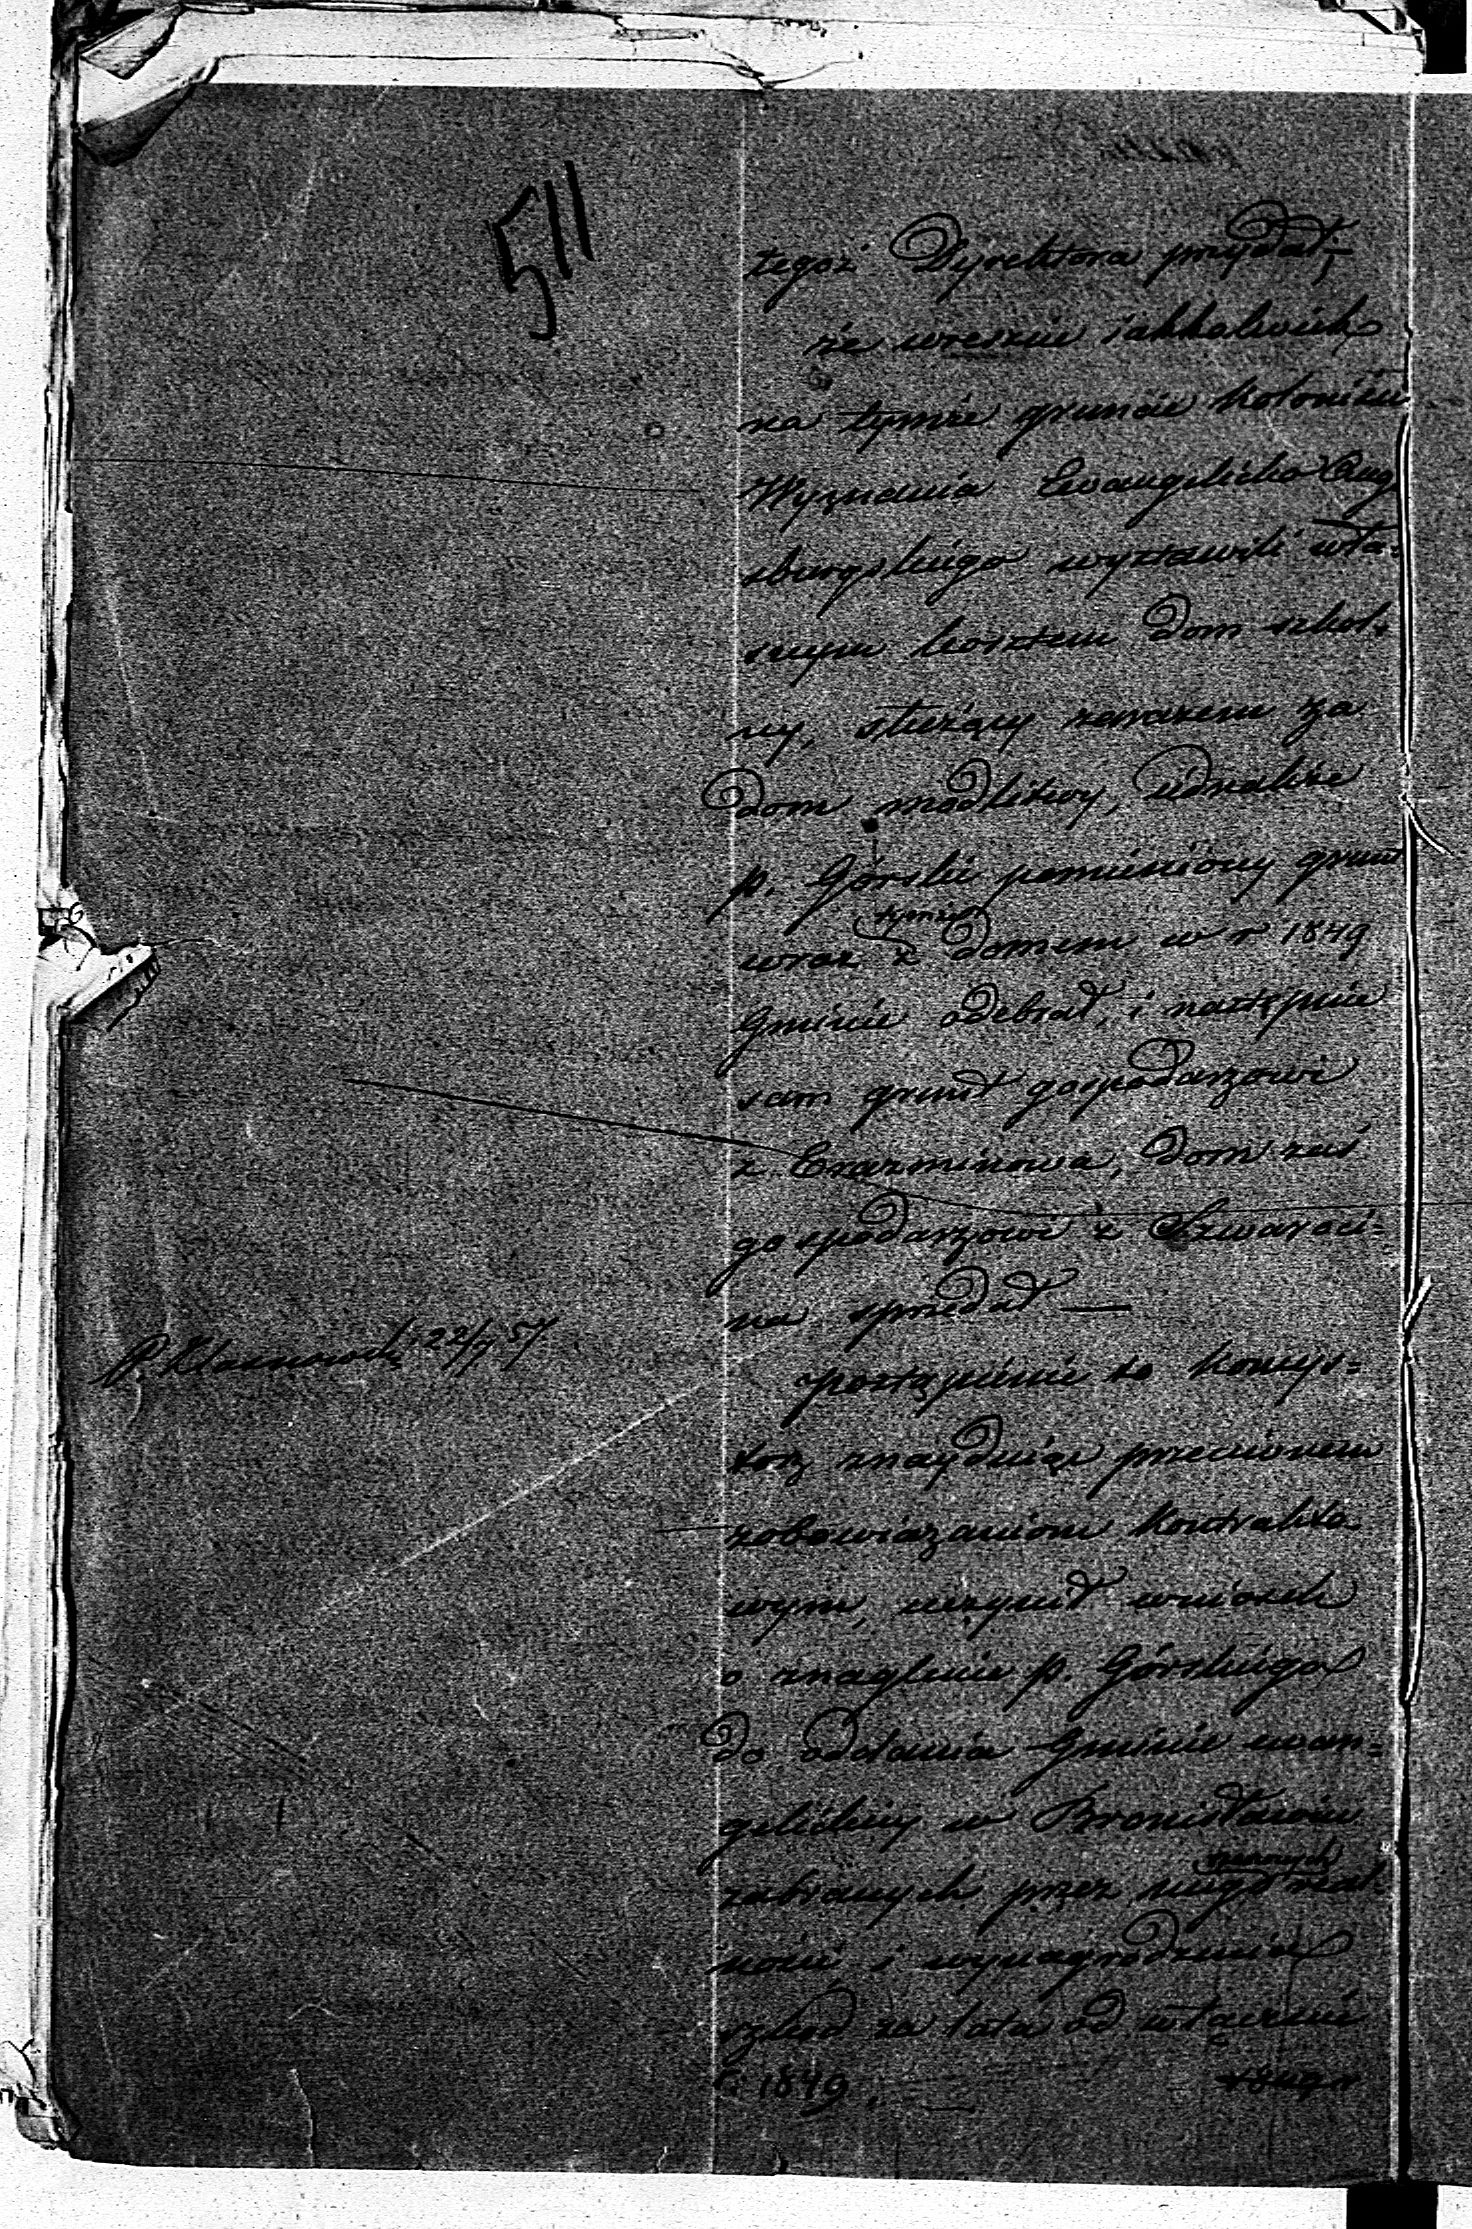 511
tegoż Dyrektora przydał;
że wreszcie jakkolwiek
na tymże gruncie koloniści
Wyznania Ewangelicko Aug
sburgskiego wystawili wła-
snym kosztem Dom szkol-
ny, służący zarazem za
Dom modlitwy, jednakże
p. Górski pomieniony grunt
tymże
wraz z domem w r 1849
Gminie odebrał, i następnie
sam grunt gospodarzowi
z Czerminowa, Dom zaś
gospodarzowi z Szwaroci-
na sprzedał —
P. 22/9 57
postąpienie to konsys-
torz znayduiąc przeciwnem
zobowiązaniom kontrakto
wym, uczynił wniosek
o znaglenie p. Górskiego
do oddania Gminie ewan-
gelickiey w Bronisławiu
zabranych przez niego
ności i wynagrodzenia
szkod za lata od włącznie
r: 1849.